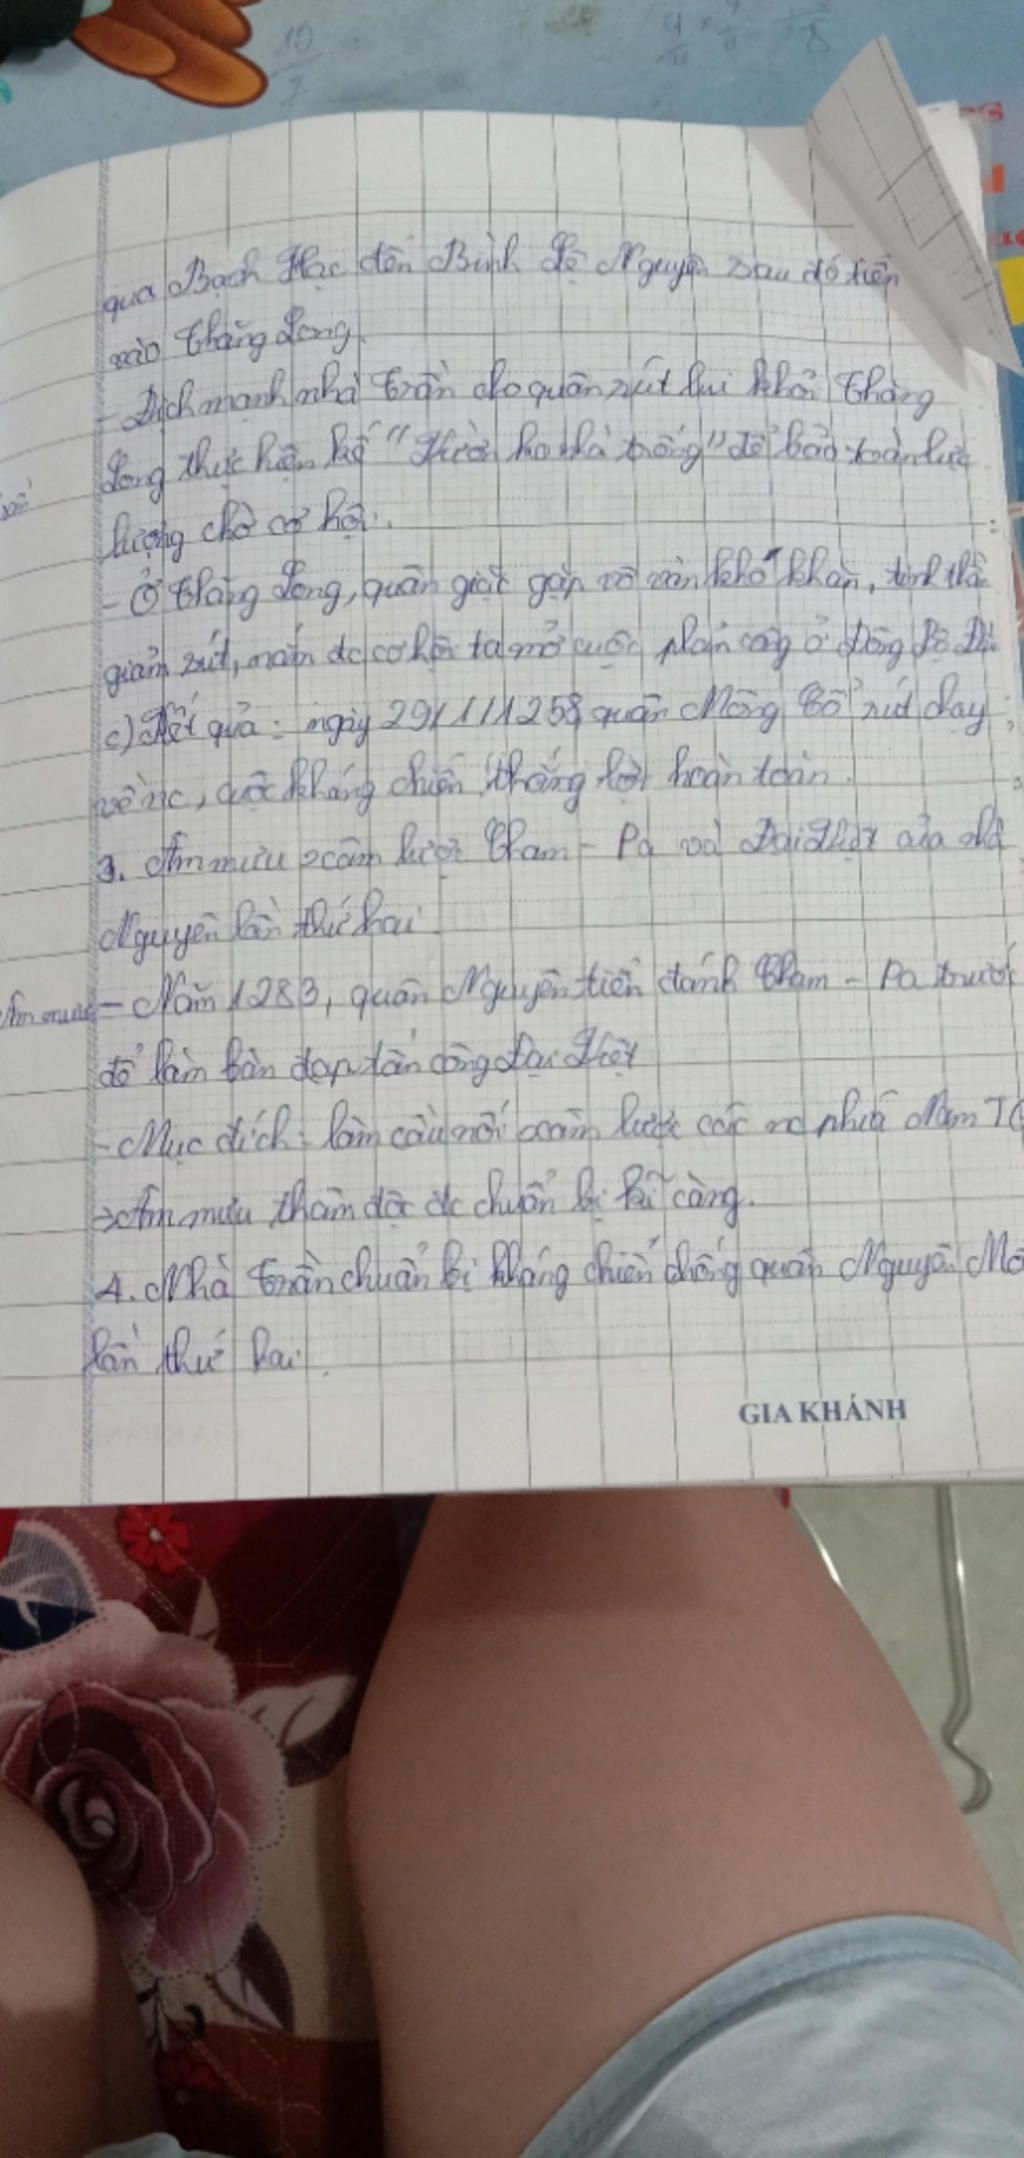 10
7
qua Bạch Hạc đến Bình Lệ Nguyên sau đó tiến
vào Thăng Long.
- Địch mạnh nhà Trần cho quân rút lui khỏi Thăng
Long thực hiện kế "Vườn ko nhà trống" để bảo toàn lực
lượng chờ cơ hội.
- Ở Thăng Long, quân giặc gặp vô vàn khó khăn, tinh thần
giảm sút, nắm dc cơ hội ta mở cuộc phản công ở Đông Bộ Đầu
c) Kết quả: ngày 29/1/1258, quân Mông Cổ rút chạy
về nc, cuộc kháng chiến thắng lợi hoàn toàn.
3. Âm mưu xâm lược Cham - Pa và Đại Việt của nhà
Nguyên lần thứ hai
Âm mưu - Năm 1283, quân Nguyên tiến đánh Cham - Pa trước
để làm bàn đạp tấn công Đại Việt
- Mục đích: làm cầu nối xâm lược các nc phía Nam TQ
=> Âm mưu thâm độc dc chuẩn bị kĩ càng.
4. Nhà Trần chuẩn bị kháng chiến chống quân Nguyên Mô
lần thứ hai.
GIA KHÁNH